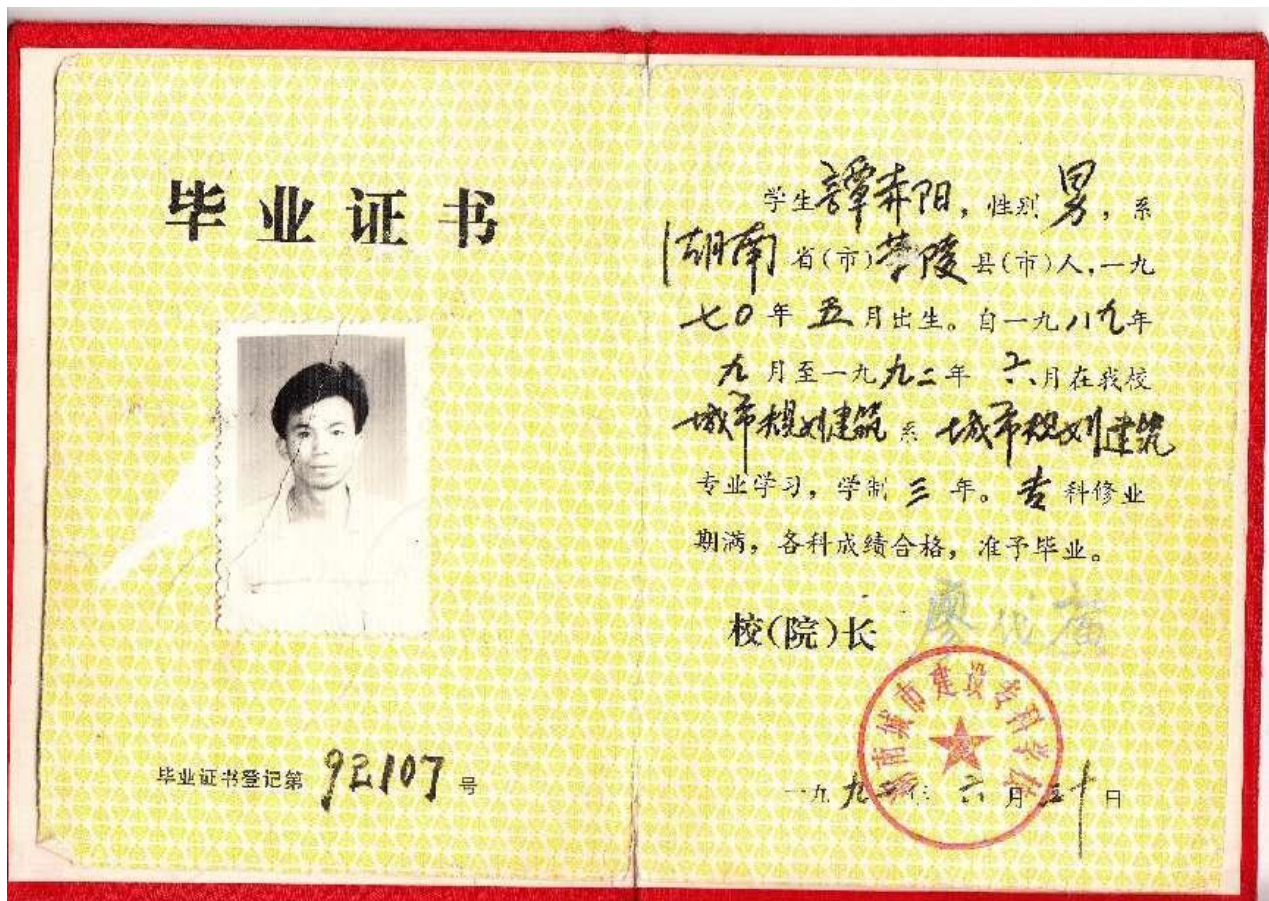 毕业证书
毕业证书登记第 92107 号
学生譚赤阳，性别 男，系
湖南省(市)茶陵县(市)人，一九
七0年五月出生。自一九八九年
九月至一九九二年六月在我校
城市规划建筑系城市规划建筑
专业学习，学制三年。专科修业
期满，各科成绩合格，准予毕业。
校(院)长 廖
湖南城市建设专科学校
一九九二年六月三十日